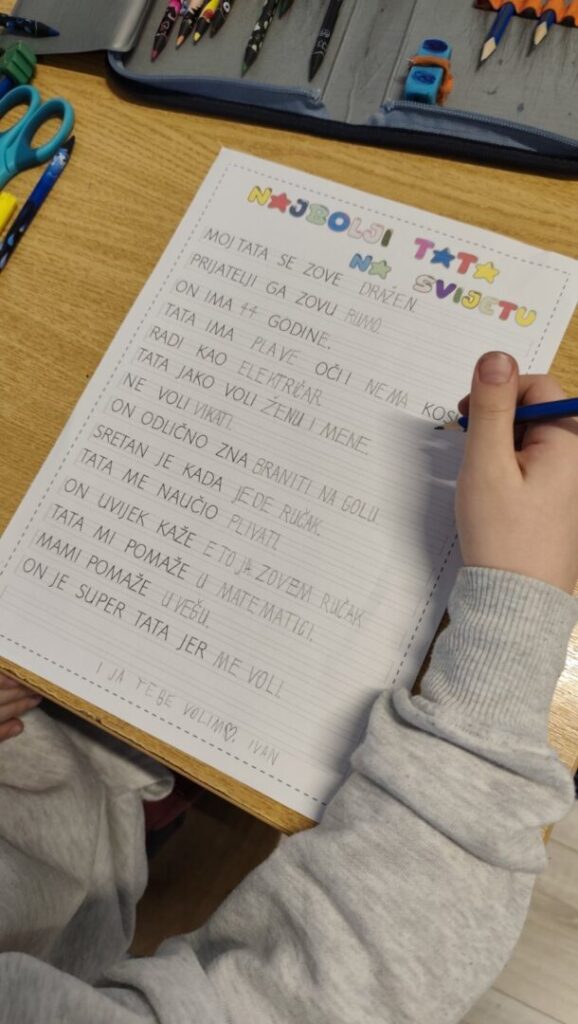 NAJBOLJI TATA
NA SVIJETU
MOJ TATA SE ZOVE DRAŽEN.
PRIJATELJI GA ZOVU
ON IMA 44 GODINE.
TATA IMA PLAVE OČI I NEMA KOSU
RADI KAO ELEKTRIČAR.
TATA JAKO VOLI ŽENU I MENE.
NE VOLI VIKATI.
ON ODLIČNO ZNA BRANITI NA GOLU.
SRETAN JE KADA JEDE RUČAK.
TATA ME NAUČIO PLIVATI.
ON UVIJEK KAŽE ETO JA ZOVEM RUČAK
TATA MI POMAŽE U MATEMATICI.
MAMI POMAŽE U VEŠU.
ON JE SUPER TATA JER ME VOLI.
I JA TEBE VOLIM♡. IVAN